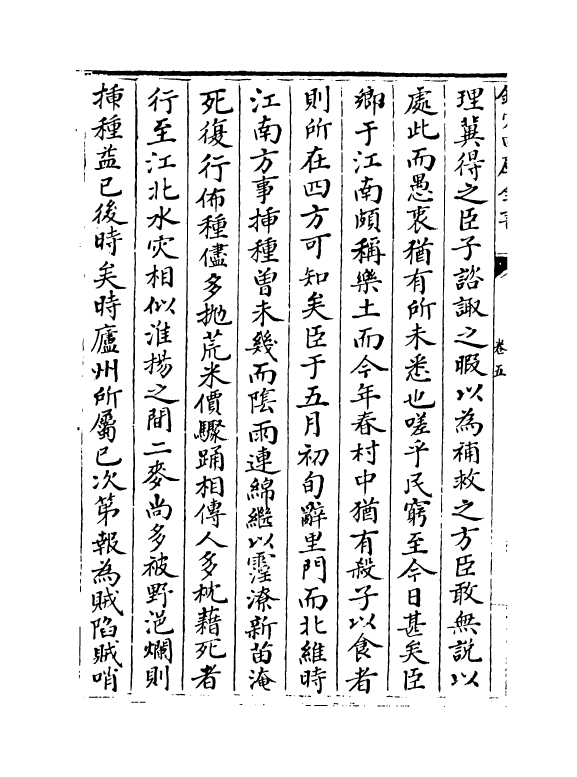 欽定四庫全書
卷五
理冀得之臣子諮諏之暇以為補救之方臣敢無說以
處此而愚衷猶有所未悉也嗟乎民窮至今日甚矣臣
鄉于江南頗稱樂土而今年春村中猶有殺子以食者
則所在四方可知矣臣于五月初旬辭里門而北維時
江南方事揷種曾未幾而陰雨連綿繼以霪潦新苗淹
死復行佈種儘多抛荒米價驟踴相傳人多枕藉死者
行至江北水灾相似淮揚之間二麥尚多被野浥爛則
揷種益已後時矣時廬州所屬已次第報為賊陷賊哨